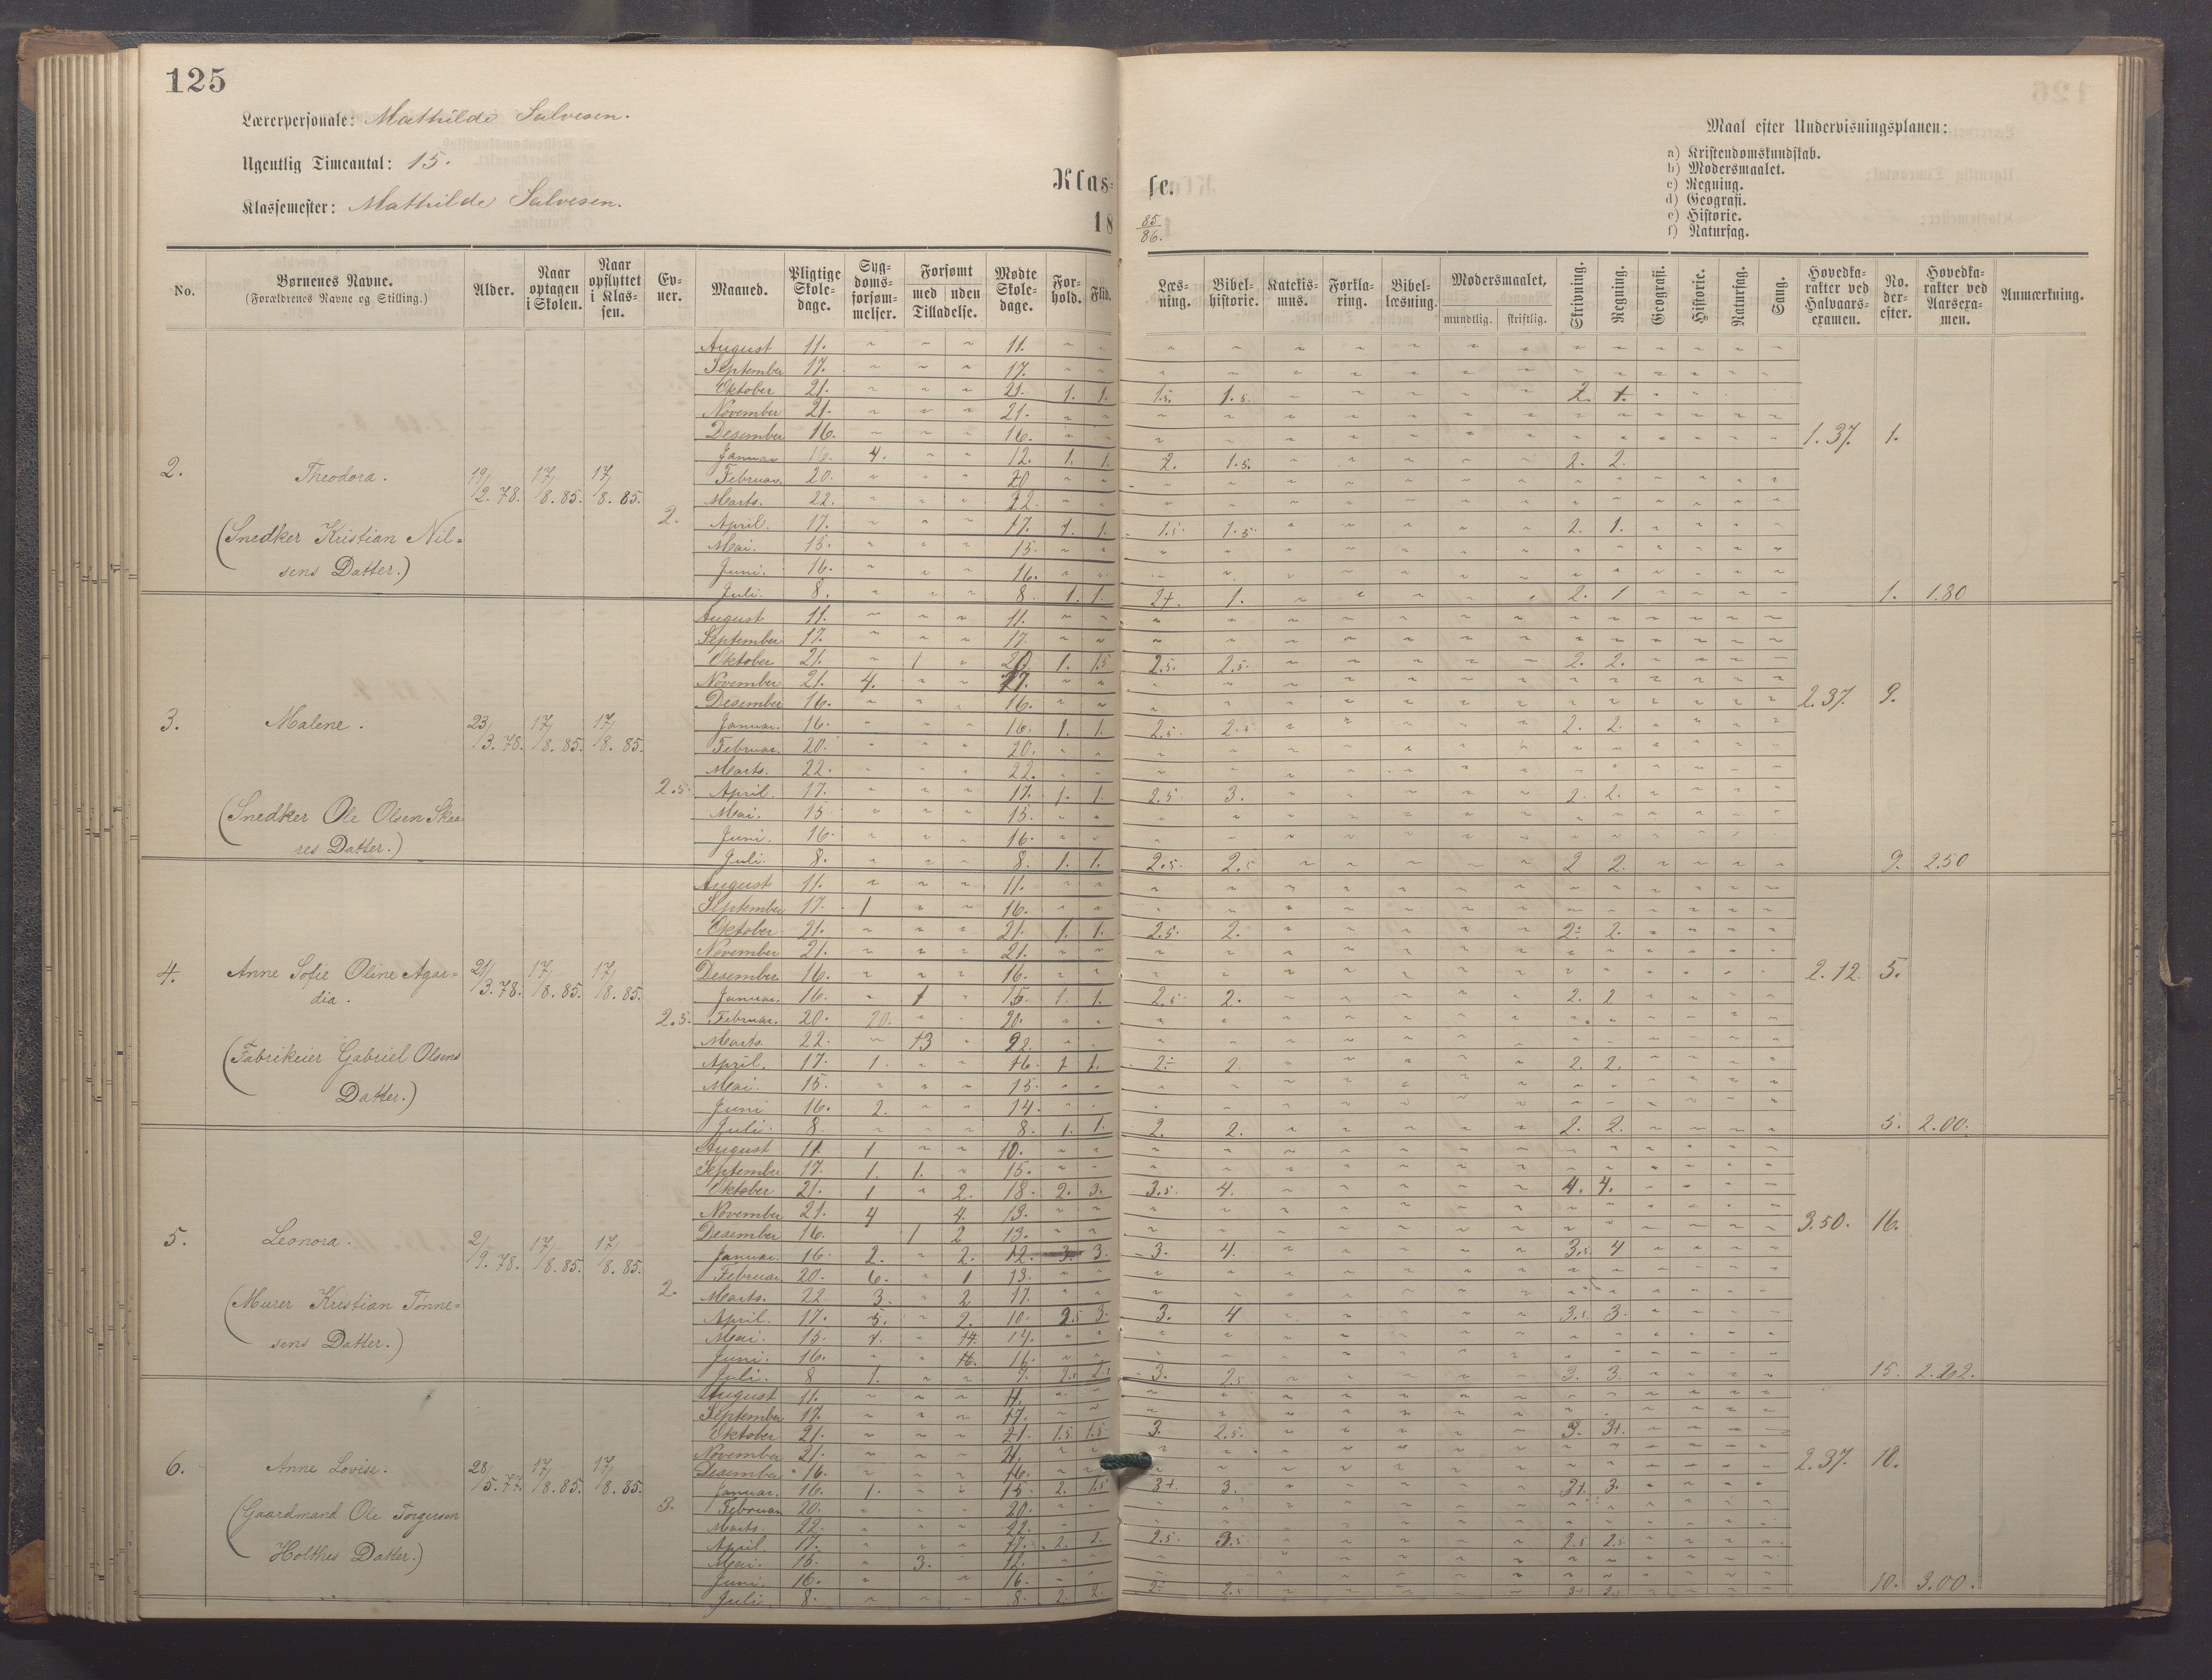 125
Lærerpersonale: Mathilde Salvesen.
Ugentlig Timeantal: 15.
Klassemester: Mathilde Salvesen.
Klasse.
18 85/86.
Maal efter Undervisningsplanen:
a) Kristendomskundskab.
b) Modersmaalet.
c) Regning.
d) Geografi.
e) Historie.
f) Naturfag.
No. | Børnenes Navne. (Forældrenes Navne og Stilling.) | Alder. | Naar optagen i Skolen. | Naar opflyttet i Klassen. | Evner. | Maaned. | Pligtige Skoledage. | Sygdomsforsømmelser. | Forsømt med uden Tilladelse. | Mødte Skoledage. | Forhold. | Flid. | Læsning. | Bibelhistorie. | Katekismus. | Forklaring. | Bibellæsning. | Modersmaalet, mundtlig. skriftlig. | Skrivning. | Regning. | Geografi. | Historie. | Naturfag. | Sang. | Hovedkarakter ved Halvaarsexamen. | No. derefter. | Hovedkarakter ved Aarsexamen. | Anmærkning.
2. Theodora. 19/12.78. 17/8.85. 17/8.85. 2.
(Snedker Kristian Nilsens Datter.)
August 11. 11.
September 17. 17.
Oktober 21. 21. 1. 1. 1.5. 1.5. 2. 1.
November 21. 21.
Desember 16. 16. 1.37. 1.
Januar 16. 4. 12. 1. 1. 2. 1.5. 2. 2.
Februar. 20. 20
Marts. 22. 22.
April. 17. 17. 1. 1. 1.5. 1.5. 2. 1.
Mai. 15. 15.
Juni. 16. 16.
Juli. 8. 8. 1. 1. 2+. 1. 2. 1 1. 1.80
3. Malene. 23/3.78. 17/8.85. 17/8.85. 2.5
(Snedker Ole Olsen Skaares Datter.)
August 11. 11.
September 17. 17
Oktober 21. 1 20. 1. 1.5 2.5. 2.5. 2. 2.
November 21. 4. 17.
Desember 16. 16. 2.37. 9.
Januar. 16. 16. 1. 1. 2.5. 2.5 2. 2.
Februar. 20. 20.
Marts. 22. 22.
April. 17. 17. 1. 1. 2.5 3. 2. 2.
Mai. 15 15.
Juni. 16. 16.
Juli. 8. 8. 1. 1. 2.5. 2.5 2 2. 9. 2.50
4. Anne Sofie Oline Agardia. 21/3.78. 17/8.85. 17/8.85. 2.5.
(Fabrikeier Gabriel Olsens Datter.)
August 11. 11.
September 17. 1 16.
Oktober 21. 21. 1. 1. 2.5. 2. 2÷ 2.
November 21. 21.
Desember 16. 16. 2.12. 5.
Januar. 16. 1 15. 1. 1. 2.5. 2. 2. 2
Februar. 20. 20. 20.
Marts. 22. 13 22.
April. 17. 1. 16. 1 1. 2÷ 2. 2. 2.
Mai. 15. 15.
Juni 16. 2. 14.
Juli. 8. 8. 1. 1. 2. 2. 2. 2. 5. 2.00.
5. Leonora. 2/9.78. 17/8.85. 17/8.85. 2.
(Murer Kristian Tønnesens Datter.)
August 11. 1 10.
September 17. 1. 1. 15.
Oktober 21. 1 2. 18. 2. 3. 3.5. 4. 4. 4.
November 21. 4 4. 13.
Desember 16. 1 2 13. 3.50. 16.
Januar. 16. 2. 2. 12. 3. 3. 3. 4. 3.5. 4
Februar 20. 6. 1 13.
Marts. 22 3. 2 17.
April. 17. 5. 2. 10. 2.5 3. 3. 4 3.5. 3.
Mai. 15.
Juni. 16.
Juli. 8 1. 3. 2.5 3. 3. 15.
6. Anne Lovise. 28/5.77. 17/8.85. 17/8.85. 3.
(Gaardmand Ole Torgersen Holthes Datter.)
August 11. 11.
September 17. 17.
Oktober 21. 21. 1.5. 1.5. 3. 2.5. 3. 3+.
November 21. 21.
Desember 16. 16. 2.37. 10.
Januar. 16. 1. 15 2. 1.5 3+. 3. 2+. 3.
Februar 20. 20.
Marts. 22. 22.
April. 17. 17. 2. 2. 2.5. 3.5 2.5 2.5
Mai. 15. 3. 12.
Juni. 16. 16.
Juli 8. 8. 2. 2. 2.5 10. 3.00.